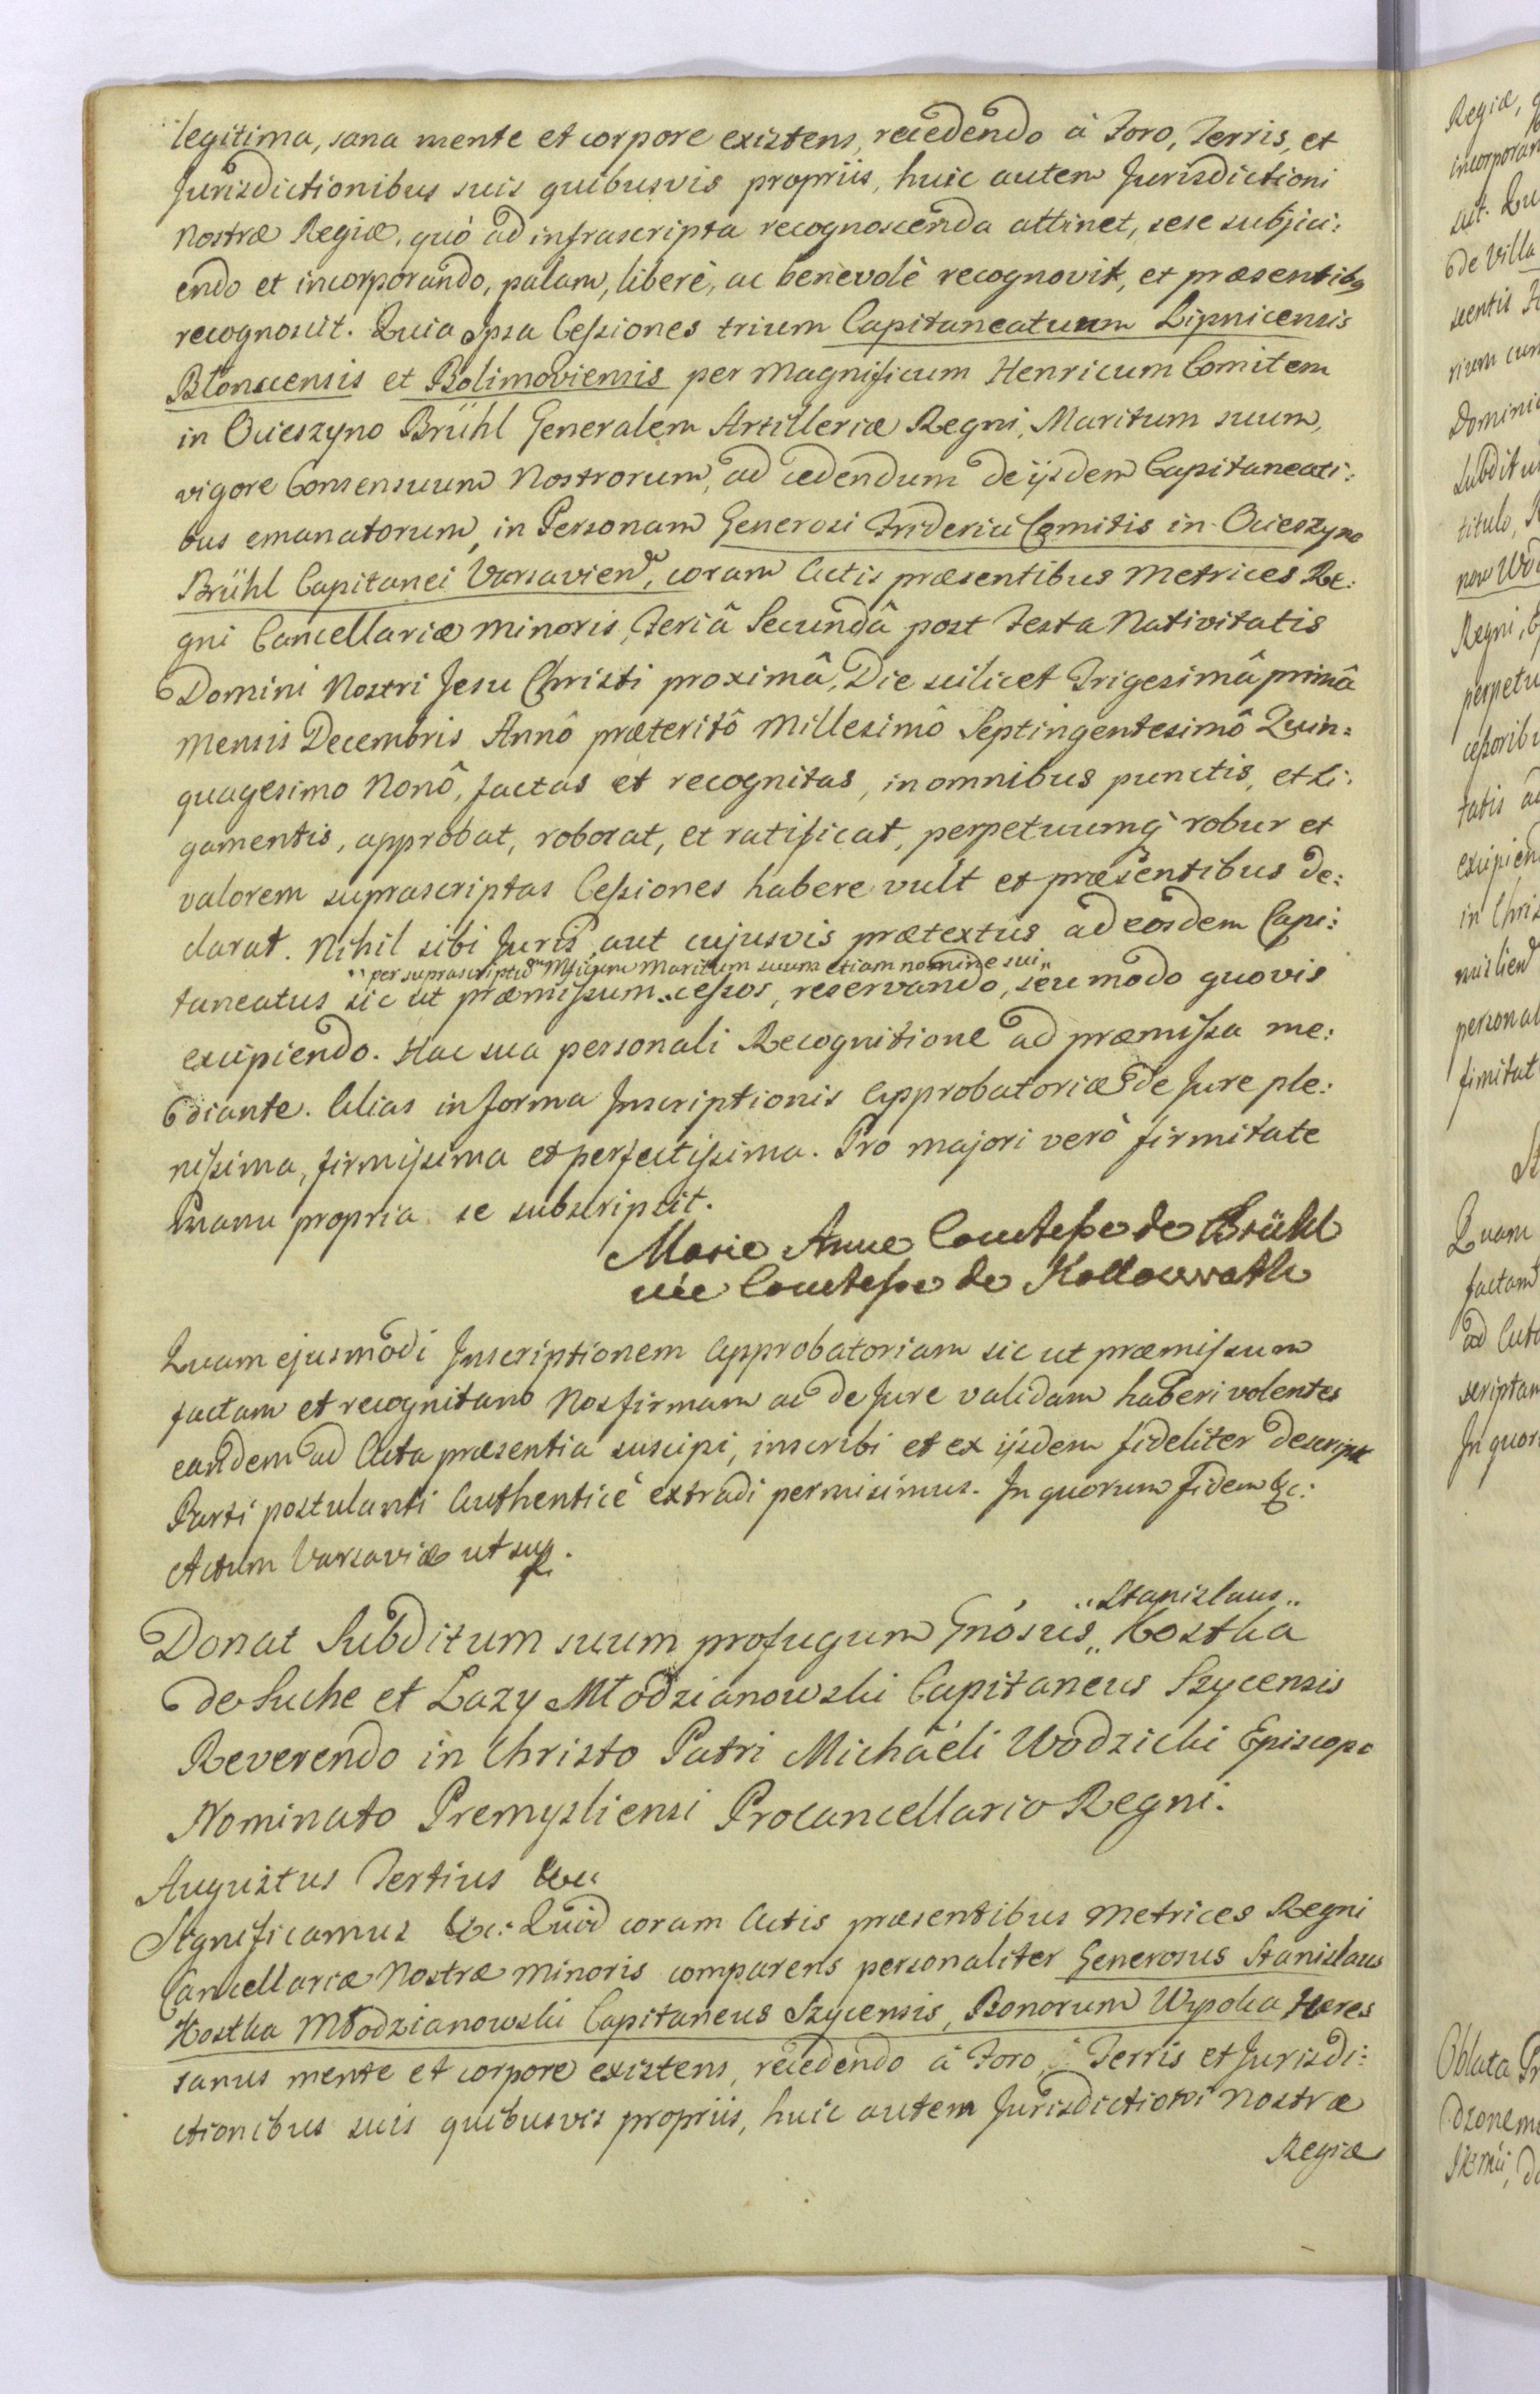 legitima, sana mente et corpore existens, recedendo à Foro, Terris, et
Jurisdictionibus suis quibusvis propriis, huic autem Jurisdictioni
Nostræ Regiæ, quò ad infrascripta recognoscenda attinet, sese subjici:
endo et incorporando, palam, liberè, ac benevolè recognovit, et præsentibg
recognoscit. Quia Ipsa Cessiones trium Capitaneatuum Lipnicensis
Błonscensis et Bolimoviensis per Magnificum Henricum Comitem
in Ocieszyno Brühl Generalem Artilleriæ Regni, Maritum suum,
vigore Consensuum Nostrorum, ad cedendum de ijsdem Capitaneati:
bus emanatorum, in Personam Generosi Friderici Comitis in Ocieszyno
Brühl Capitanei Varsavien, coram Actis præsentibus Metrices Re:
gni Cancellariæ Minoris, Feriâ Secundâ post Festa Nativitatis
Domini Nostri Jesu Christi proximâ, Die scilicet Trigesimâ primâ
Mensis Decembris Annô præteritô Millesimô Septingentesimô Quin=
quagesimo Nonô, factas et recognitas, in omnibus punctis, et Li:
gamentis, approbat, roborat, et ratificat, perpetuumq robur et
valorem suprascriptas Cessiones habere vult et præsentibus de:
clarat. Nihil sibi Juris aut cujusvis prætextus ad eosdem Capi:
„per suprascriptū Mficum Maritum suum etiam nomine sui„
taneatus sic ut præmissum „ cessos, reservando, seu modo quovis
excipiendo. Hac sua personali Recognitione ad præmissa me:
diante. Alias in forma Inscriptionis Approbatoriæ de Jure ple:
nissima, firmissima et perfectissima. Pro majori verò firmitate
Manu propria se subscripsit.
Marie Anne Comtesse de Brühl
née Comtesse de Kollowrath
Quam ejusmodi Inscriptionem Approbatoriam sic ut præmissum
factam et recognitam Nos firmam ac de Jure validam haberi volentes
eandem ad Acta præsentia suscipi, inscribi et ex ijsdem fideliter descript
Parti postulanti Authenticè extradi permisimus. In quorum fidem &c:
Actum Varsaviæ ut sup.
„Stanislaus„
Donat Subditum suum profugum Gnósus „ Kostka
de Suche et Łazy Młodzianowski Capitaneus Szycensis
Reverendo in Christo Patri Michaëli Wodzicki Episcopo
Nominato Premysliensi Procancellario Regni.
Augustus Tertius &c
Significamus &c: Quod coram Actis præsentibus Metrices Regni
Cancellariæ Nostræ Minoris comparens personaliter Generosus Stanislaus
Kostka Młodzianowski Capitaneus Szycensis, Bonorum Wypoka Heres
sanus mente et corpore existens, recedendo à Foro, Terris et Jurisdi:
ctionibus suis quibusvis propriis, huic autem Jurisdictioni Nostræ
Regiæ
Regiæ,
de Villa
Domini
titulo,
Regni,
in Chris
personal
Quam
factam
ad Acta
In quor
Oblata